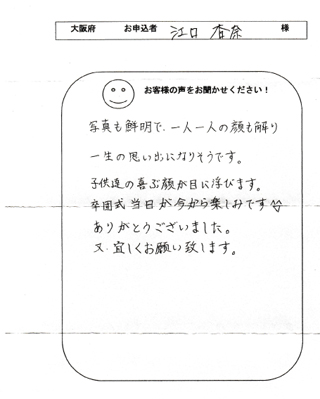 大阪府 お申込者 江口 香奈 様
お客様の声をお聞かせください！
写真も鮮明で、一人一人の顔も解り
一生の思い出になりそうです。
子供達の喜ぶ顔が目に浮びます。
卒園式当日が今から楽しみです♡
ありがとうございました。
又、宜しくお願い致します。